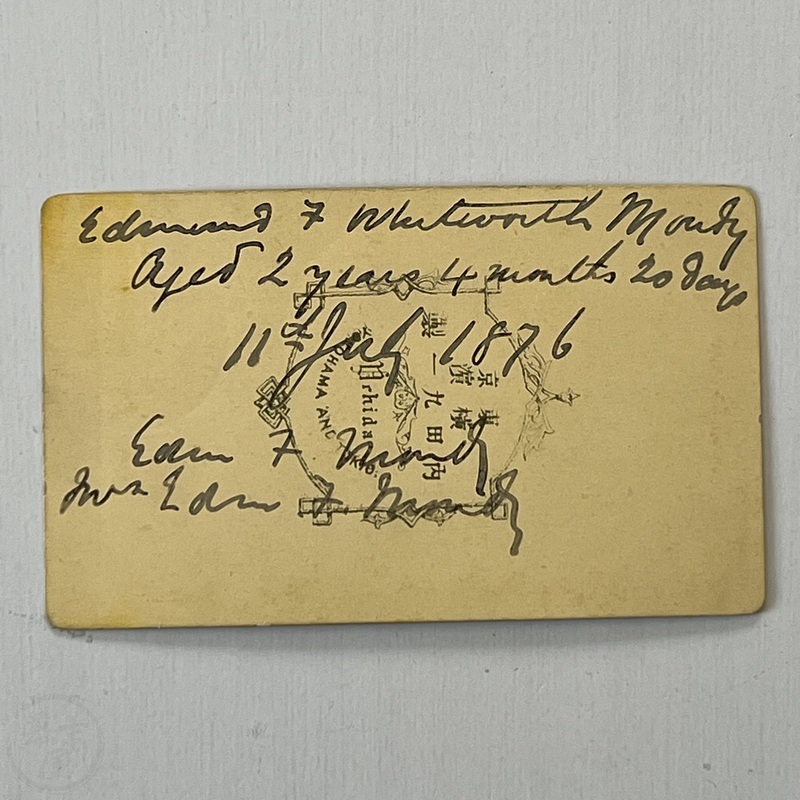 Edmund F Whitworth Mondy
Aged 2 years 4 months 20 days
11th July 1876
Edm F Mondy
Mrs Edm F. Mondy
東京
横濱
内田九一製
Uchida
HAMA AND